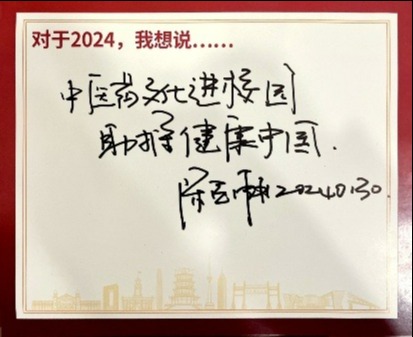 对于2024，我想说……
中医药文化进校园
助推健康中国.
20240130.